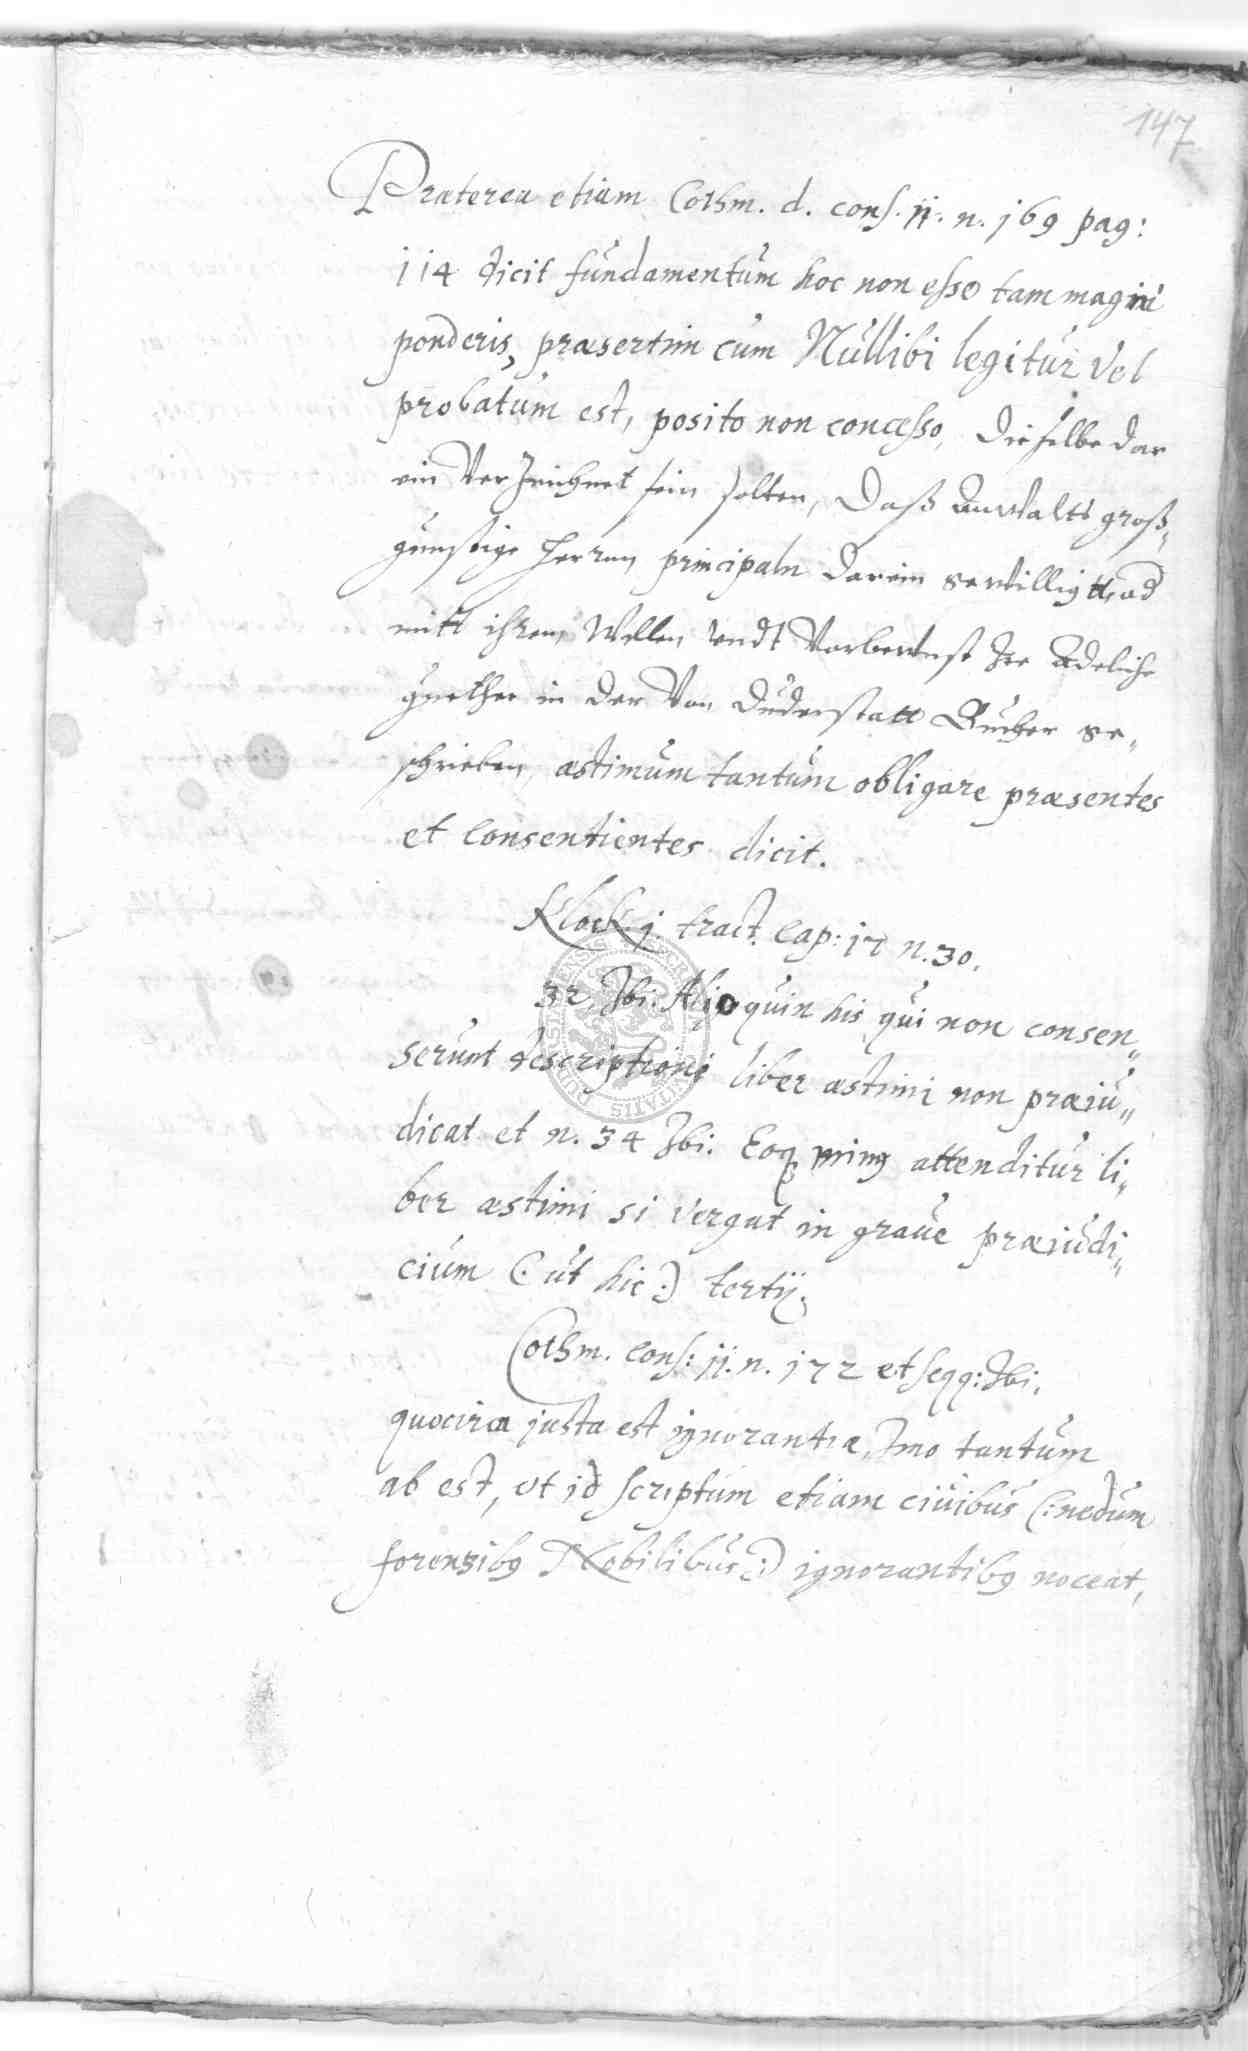 147
Præterea etiam Cothm. d. cons. ii. n. j69 pag:
j i4 dicit fundamentum hoc non esse tam magni
ponderis, præsertim cum Nullibi legitur vel
probatum est, posito non concesso, dieselbe dar
ein Verzeichnet sein solten, daß Anwalts groß„
günstige Herren principaln darein gewilligtt, od
mitt ihren Willen undt Vorbewust Ire Adeliche
guether in der Von Duderstatt Bücher ge„
schrieben, æstimum tantum obligare præsentes
et consentientes dicit.
Klock. j. tract. Cap: 17 n. 30.
32. Ibi. Alioquin his qui non consen„
serunt descriptioni liber æstimi non præiu„
dicat et n. 34 Ibi. Eoq minus attenditur li„
ber æstimi si vergat in graue præiudi„
cium (: ut hic :) tertij.
Cothm. Cons: ii. n. j72 et seqq: Ibi.
quocirca justa est ignorantiæ, Imo tantum
ab est, ut id scriptum etiam ciuibus (: nedum
forensib9 Nobilibus :) ignorantib9 noceat,